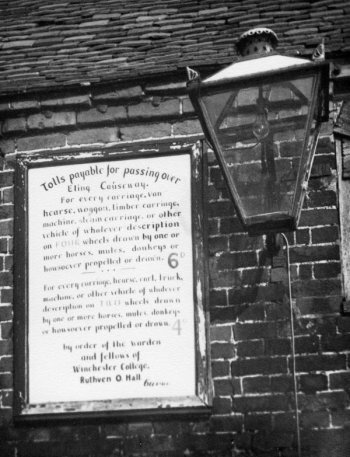 Tolls payable for passing over
Eling Causeway.
For every carriage, van
hearse, waggon, timber carriage,
machine, steam carriage, or other
vehicle of whatever description
on FOUR wheels drawn by one or
more horses, mules, donkeys or
howsoever propelled or drawn. 6D
For every carriage, hearse, cart, truck,
machine, or other vehicle of whatever
description on TWO wheels drawn
by one or more horses, mules, donkeys
or howsoever propelled or drawn. 4
by order of the Warden
and fellows of
Winchester College.
Ruthven O. Hall